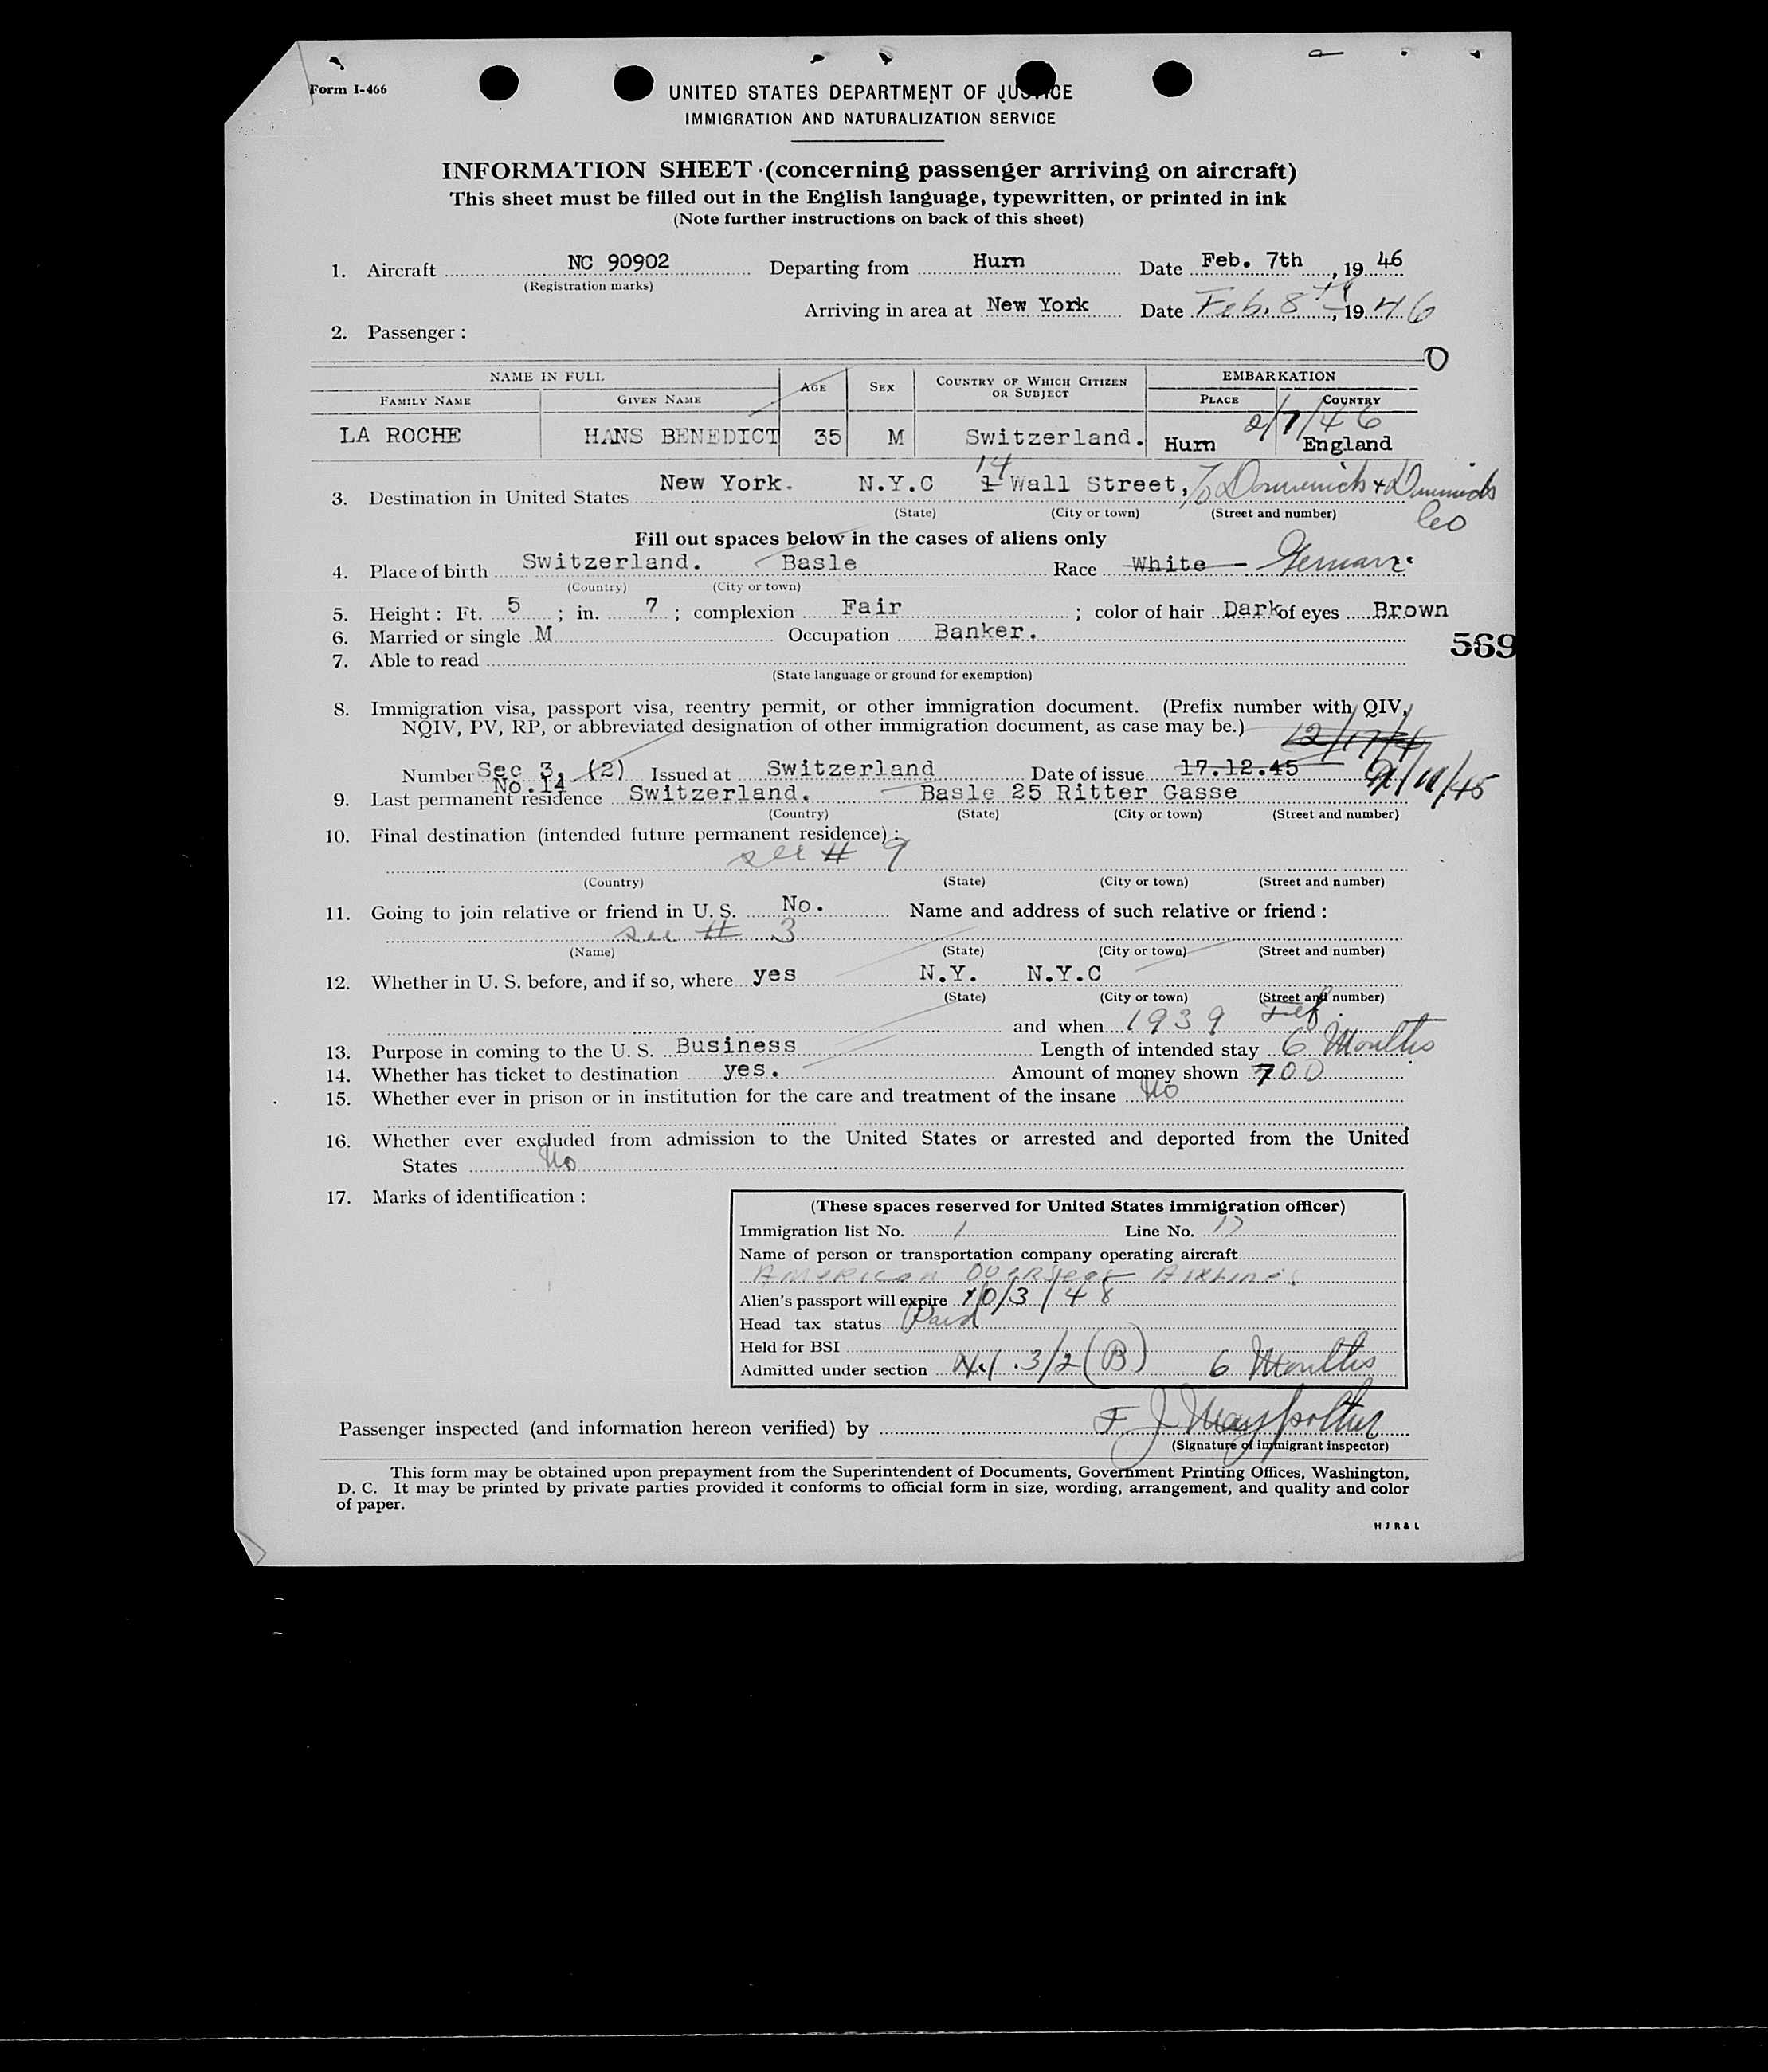 Form I-466
UNITED STATES DEPARTMENT OF JUSTICE
IMMIGRATION AND NATURALIZATION SERVICE
INFORMATION SHEET (concerning passenger arriving on aircraft)
This sheet must be filled out in the English language, typewritten, or printed in ink
(Note further instructions on back of this sheet)
1. Aircraft NC 90902 Departing from Hurn Date Feb. 7th, 19 46
(Registration marks)
Arriving in area at New York Date Feb. 8th, 19 46
2. Passenger :
O
NAME IN FULL AGE SEX COUNTRY OF WHICH CITIZEN OR SUBJECT EMBARKATION
FAMILY NAME GIVEN NAME PLACE COUNTRY
2/7/46
LA ROCHE HANS BENEDICT 35 M Switzerland. Hurn England
14
3. Destination in United States New York. N.Y.C 1 Wall Street, % Dominick & Dominick
(State) (City or town) (Street and number) Co
Fill out spaces below in the cases of aliens only
4. Place of birth Switzerland. Basle Race White - German
(Country) (City or town)
5. Height : Ft. 5 ; in. 7 ; complexion Fair ; color of hair Dark of eyes Brown
6. Married or single M Occupation Banker.
569
7. Able to read
(State language or ground for exemption)
8. Immigration visa, passport visa, reentry permit, or other immigration document. (Prefix number with QIV,
NQIV, PV, RP, or abbreviated designation of other immigration document, as case may be.)
Number Sec 3, (2) Issued at Switzerland Date of issue 17.12.45
No.14
9. Last permanent residence Switzerland. Basle 25 Ritter Gasse
(Country) (State) (City or town) (Street and number)
10. Final destination (intended future permanent residence) :
see # 9
(Country) (State) (City or town) (Street and number)
11. Going to join relative or friend in U. S. No. Name and address of such relative or friend :
see # 3
(Name) (State) (City or town) (Street and number)
12. Whether in U. S. before, and if so, where yes N.Y. N.Y.C
(State) (City or town) (Street and number)
and when 1939
13. Purpose in coming to the U. S. Business Length of intended stay 6 Months
14. Whether has ticket to destination yes. Amount of money shown 700
15. Whether ever in prison or in institution for the care and treatment of the insane No
16. Whether ever excluded from admission to the United States or arrested and deported from the United
States No
17. Marks of identification :
(These spaces reserved for United States immigration officer)
Immigration list No. 1 Line No. 17
Name of person or transportation company operating aircraft
American Overseas Airlines
Alien's passport will expire 10/3/48
Head tax status Paid
Held for BSI
Admitted under section 3/2 (B) 6 Months
Passenger inspected (and information hereon verified) by F J
(Signature of immigrant inspector)
This form may be obtained upon prepayment from the Superintendent of Documents, Government Printing Offices, Washington,
D. C. It may be printed by private parties provided it conforms to official form in size, wording, arrangement, and quality and color
of paper.
H J R & L